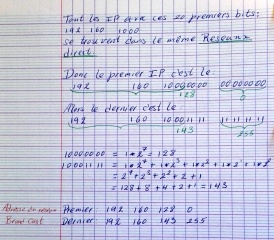 Tout les IP avec ces 20 premiers bits:
192 160 1000
se trouvent dans le même Reseaux
direct.
Donc le premier IP c'est le
192 160 10000000 00000000
128 0
Alors le dernier c'est le
192 160 10001111 11111111
143 255
10000000 = 1*2⁷ = 128
10001111 = 1*2⁷ + 1*2³ + 1*2² + 1*2¹ + 1*2⁰
= 2⁷ + 2³ + 2² + 2 + 1
= 128 + 8 + 4 + 2 + 1 = 143
Adresse du reseau Premier 192 160 128 0
Broad Cast Dernier 192 160 143 255